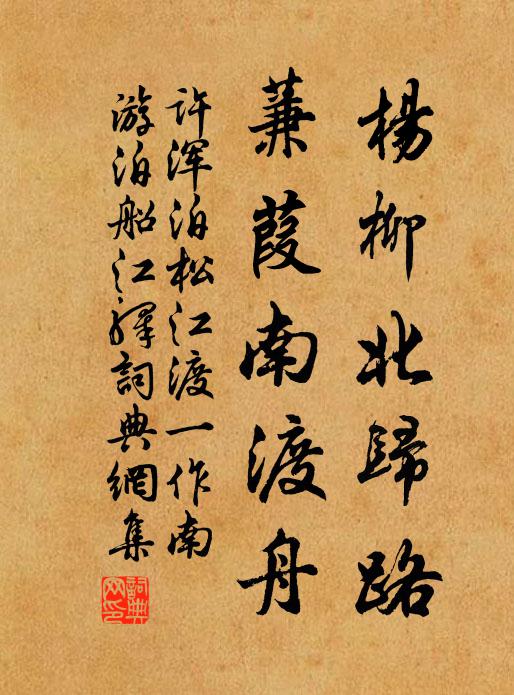 楊柳北歸路
蒹葭南渡舟
許渾泊松江渡一作南
游泊船江譯詞典網集
詞典網印